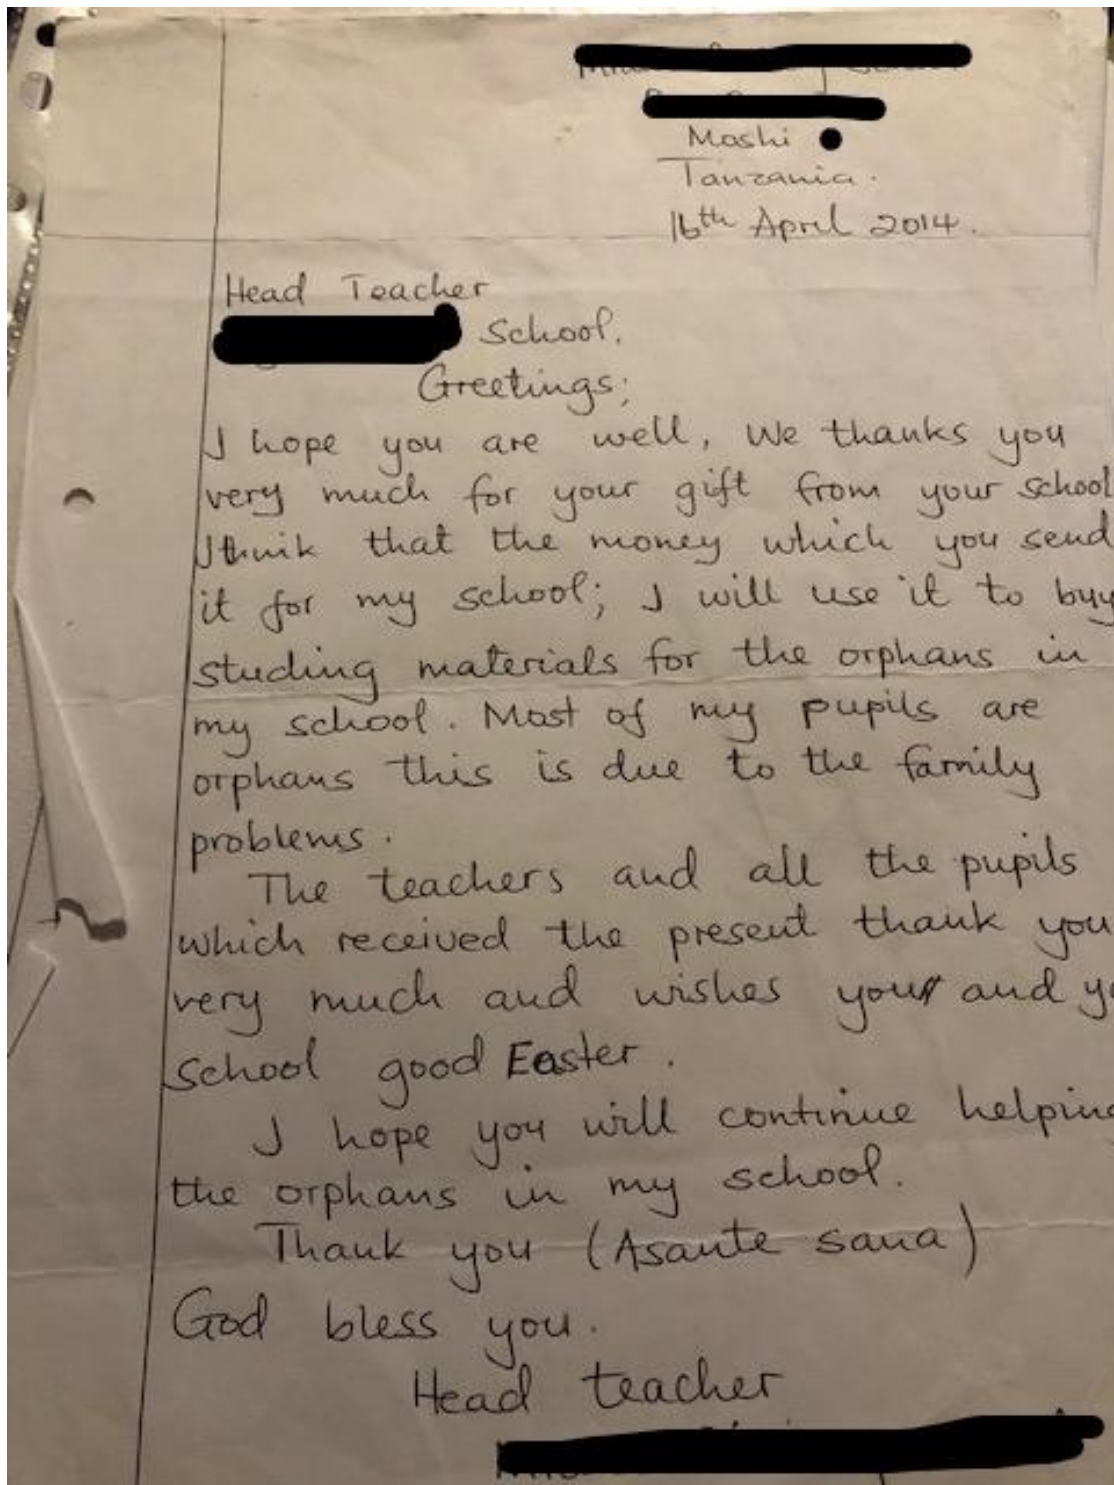 Moshi
Tanzania.
16th April 2014.
Head Teacher
School.
Greetings;
I hope you are well, We thanks you
very much for your gift from your school
I think that the money which you send
it for my school; I will use it to buy
studing materials for the orphans in
my school. Most of my pupils are
orphans this is due to the family
problems.
The teachers and all the pupils
which received the present thank you
very much and wishes you and
School good Easter.
I hope you will continue helping
the orphans in my school.
Thank you (Asante sana)
God bless you.
Head teacher